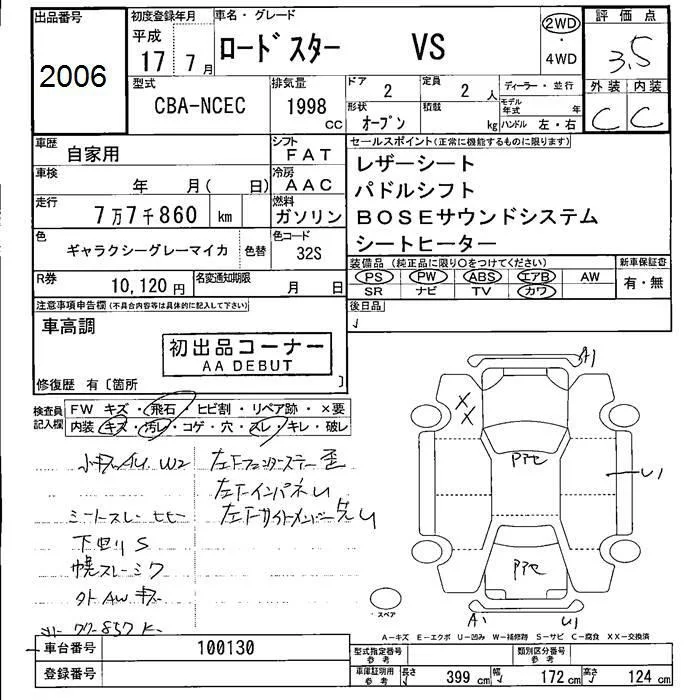 出品番号
2006
初度登録年月
平成
17 7月
車名・グレード
ロードスター VS
2WD
・
4WD
評価点
3.5
外装 内装
C C
型式
CBA-NCEC
排気量
1998
CC
ドア
2
定員
2 人
形状
オープン
積載
kg
ディーラー・並行
モデル年式 年
ハンドル 左・右
車歴
自家用
シフト
FAT
車検
年 月( 日)
冷房
AAC
走行
7万7千860 km
燃料
ガソリン
色
ギャラクシーグレーマイカ
色替
色コード
32S
R券
10,120円
名変通知期限
月 日
セールスポイント(正常に機能するものに限ります)
レザーシート
パドルシフト
BOSEサウンドシステム
シートヒーター
装備品 (純正品に限り○をつけてください)
新車保証書
PS PW ABS エアB AW
SR ナビ TV カワ
有・無
後日品
注意事項申告欄(不具合内容等は具体的に記入して下さい)
車高調
初出品コーナー
AA DEBUT
修復歴 有〔箇所 〕
検査員
記入欄
FW キズ・飛石・ヒビ割・リペア跡・×要
内装・キズ・汚レ・コゲ・穴・スレ・キレ・破レ
小キズAU. W2
左Fフェンダーステー歪
左FインパネU
シートスレ
左Fサイドメンバー先U
下回りS
幌スレ
外AWキズ
77-857K
A1
XX
Pﾌﾟｾ
U1
Pﾌﾟｾ
A1 U1
スペア
A-キズ E-エクボ U-凹み W-補修跡 S-サビ C-腐食 XX-交換済
車台番号
100130
登録番号
型式指定番号
参考
類別区分番号
参考
車庫証明用
参考
長さ 399 cm
幅 172 cm
高さ 124 cm